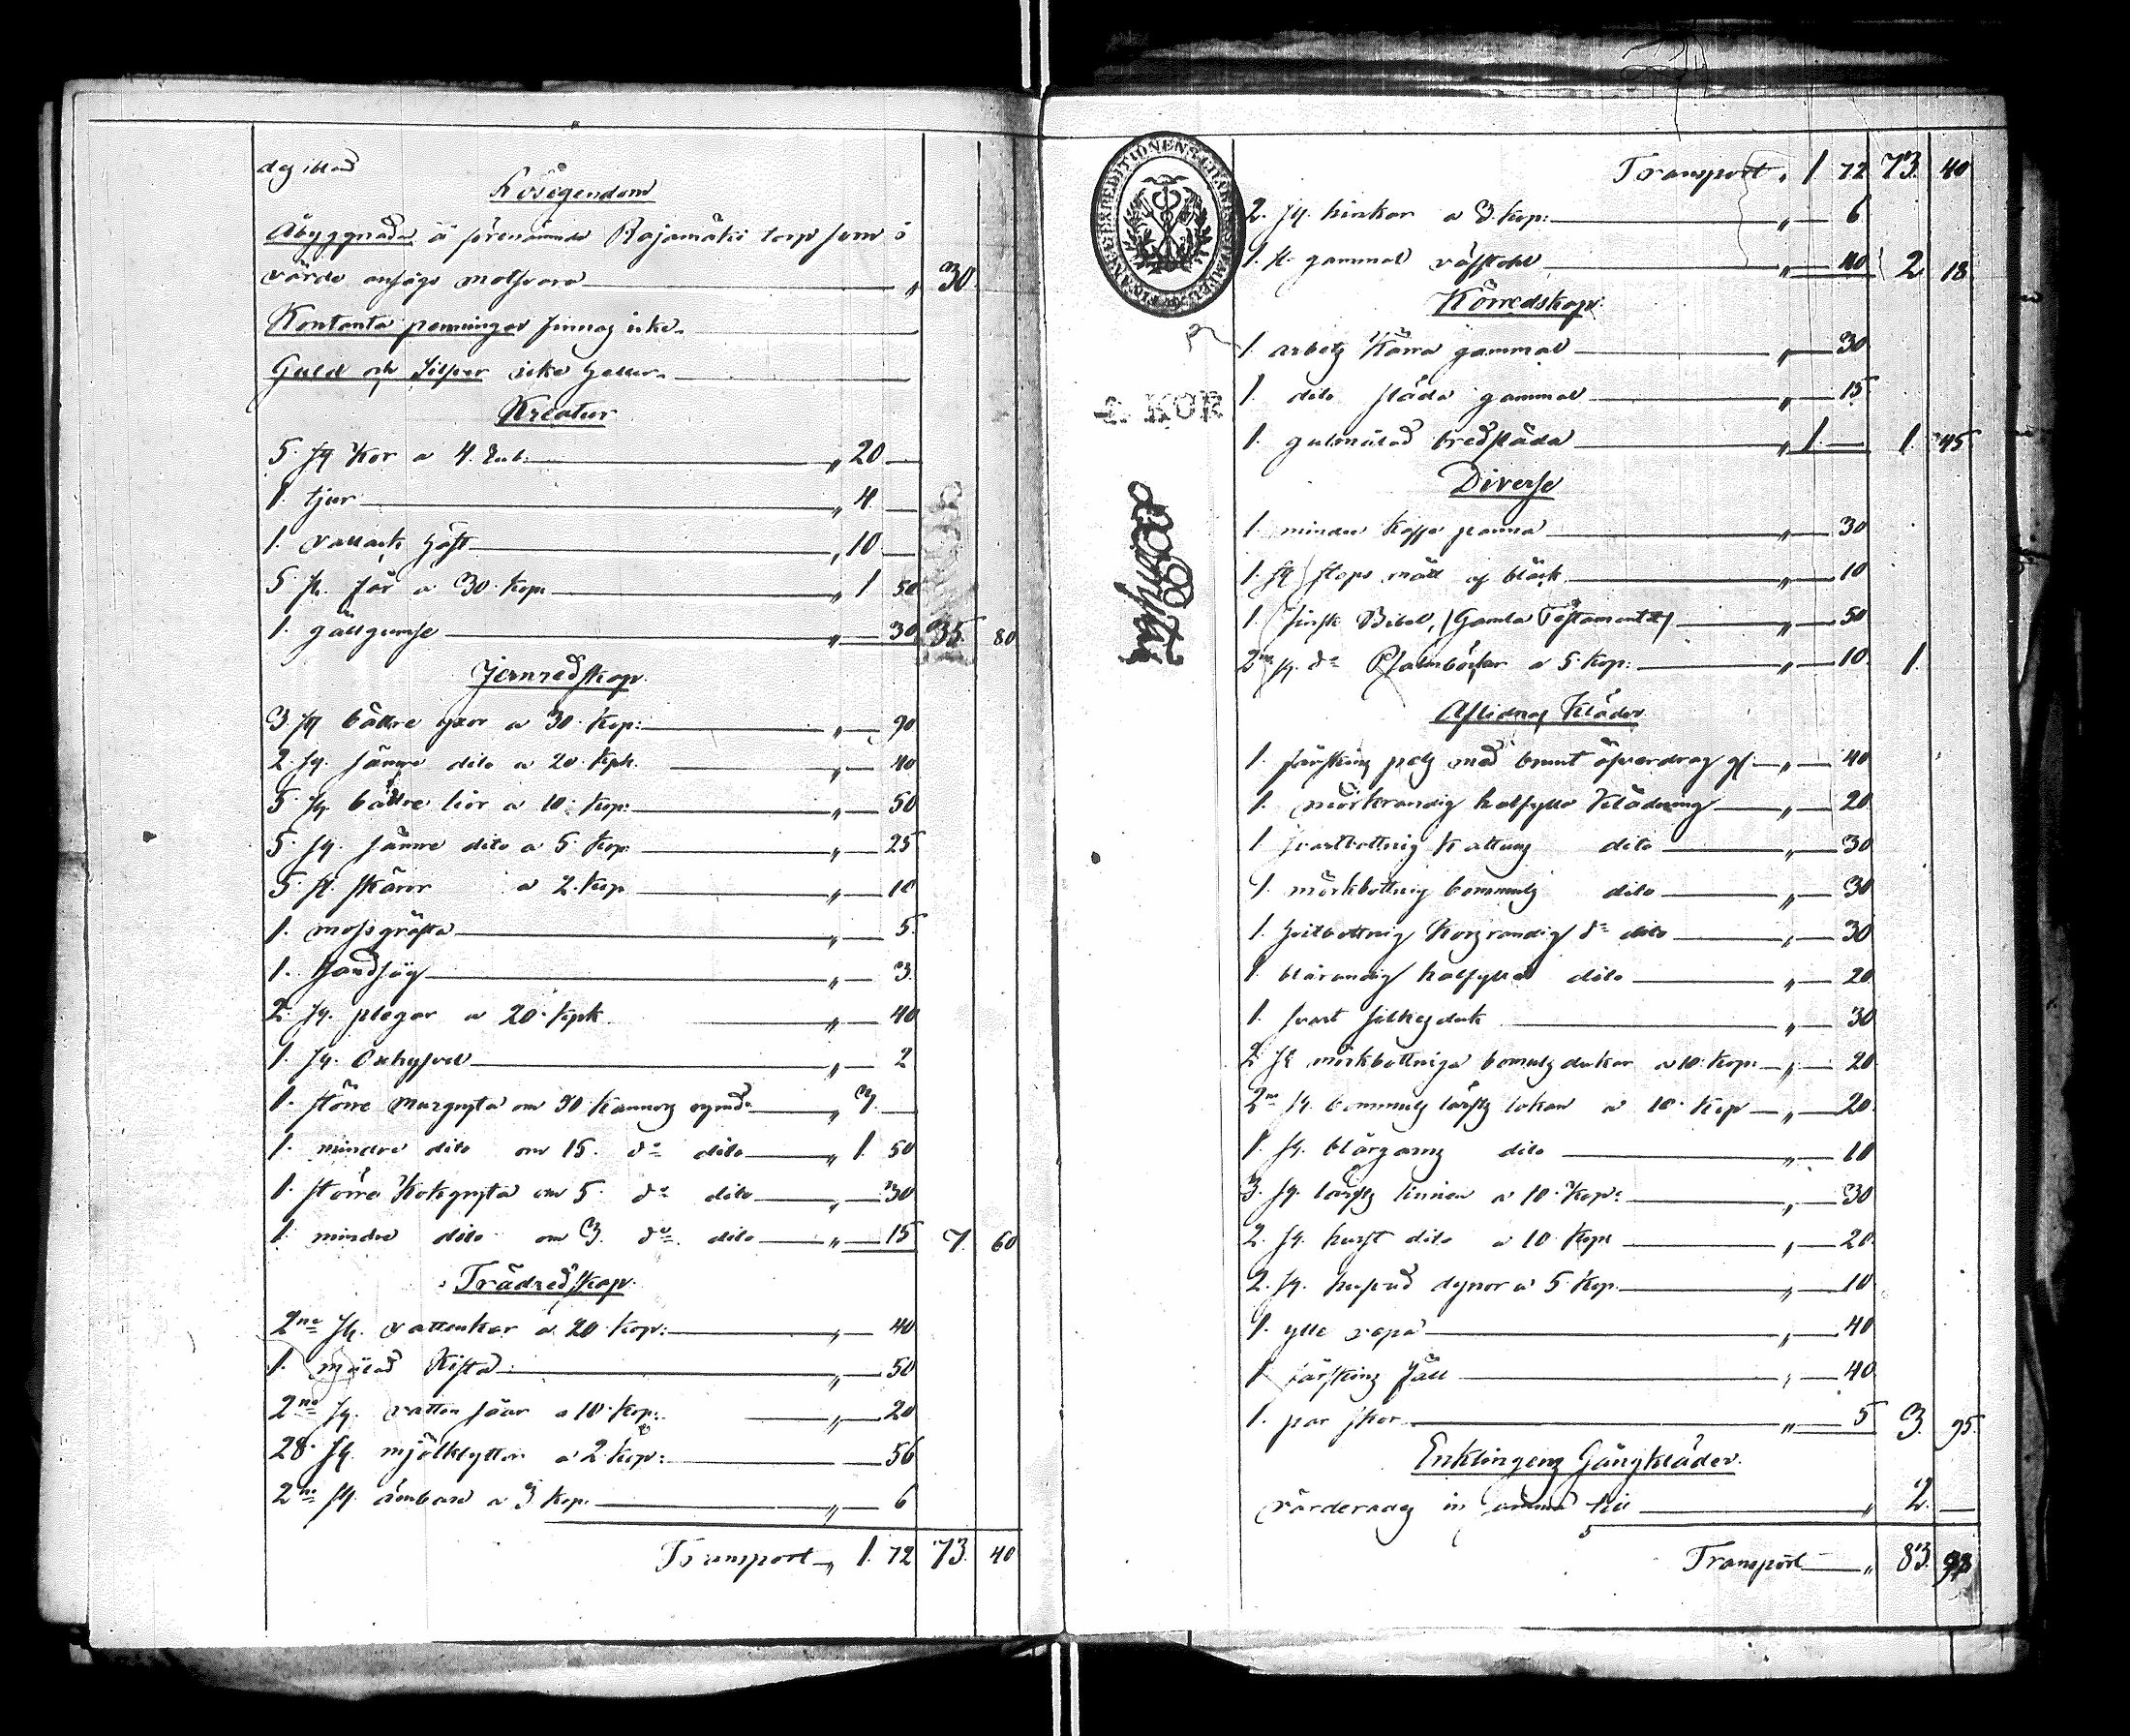 Lösegendom
Åbyggnader å förenämnde Rajamäki torp som i
värde ansågs motsvara " 30
Kontanta penningar finnas icke.
Guld och Silfver icke heller.
Kreatur
5. st Kor a 4. Rub. " 20 —
1. tjur " 4. —
1. vallack häst " 10 —
5. st. får a 30. Kop. " 1 50
1. gällgumse " — 30 35. 80
Jernredskap.
3 st bättre yxor a 30. Kop: " — 90
2. st. sämre dito a 20. Kpk. " — 40
5. st. bättre liar a 10. Kop: " — 50
5. st. sämre dito a 5. Kop. " — 25
5. st. skäror a 2. Kop " — 10
1. mossgräfta " — 5.
1. handsåg " — 3.
2. st. plogar a 20. Kpk " — 40
1. st. " — 2
1. större murgryta om 30. Kannors rymd " 3. —
1. mindre dito om 15. do dito " 1. 50
1. större Kokgryta om 5. do dito " — 30
1. mindre dito om 3. do dito " — 15 7. 60
Trädredskap.
2ne st. vattenkar a 20. Kop: " — 40
1. målad Kista " — 50
2ne st. vatten såar a 10. Kop: " — 20
28. st. mjölkbyttor a 2. Kop: — 56
2ne st. ämbare a 3 Kop. " — 6
Transport " 1. 72 73. 40
FINANCE-EXPEDITIONENS CHARTÆ STÄMPEL
Transport " 1 72 73. 40
2. st. hinkar a 3. Kop: " — 6
1. st. gammal väfstol " — 40 2 18
Körredskap.
1. arbets Kärra gammal " — 30
1. dito släda gammal " — 15
1. gulmålad bredsläda " 1. — 1. 45
4. KOP
Diverse
1. mindre Kaffe panna " — 30
1. st stops mått af bläck " — 10
1. finsk Bibel, (Gamla Testamentet) " — 50
2ne st. do Psalmböcker a 5. Kop: " — 10 1.
Aflidnes Kläder
1. fårskins pels med bomt öfverdrag gl. " — 40
1. mörkrandig halfylle Klädning " — 20
1 svartbottnig Kattuns dito " — 30
1. mörkbottnig bommuls dito " — 30
1. hvitbottnig Korsrandig do dito " — 30
1. blårandig halfylle dito " — 20
1. svart silkesduk " — 30
2 st mörkbottniga bomuls dukar a 10. Kop. " — 20
2ne st. bommuls lärfts lakan a 10. Kop " — 20
1. st. blårgarns dito " — 10
3. st. lärfts linnen a 10. Kop: " — 30
2. st. hurst dito a 10 Kop. " — 20
2. st. hufvud dynor a 5 Kop. " — 10
1. ylle vepa " — 40
1 fårskins fäll " — 40
1. par skor " — 5 3. 95.
Enklingens Gångkläder.
värderades in summa till " 2. —
Transport " 83. 98